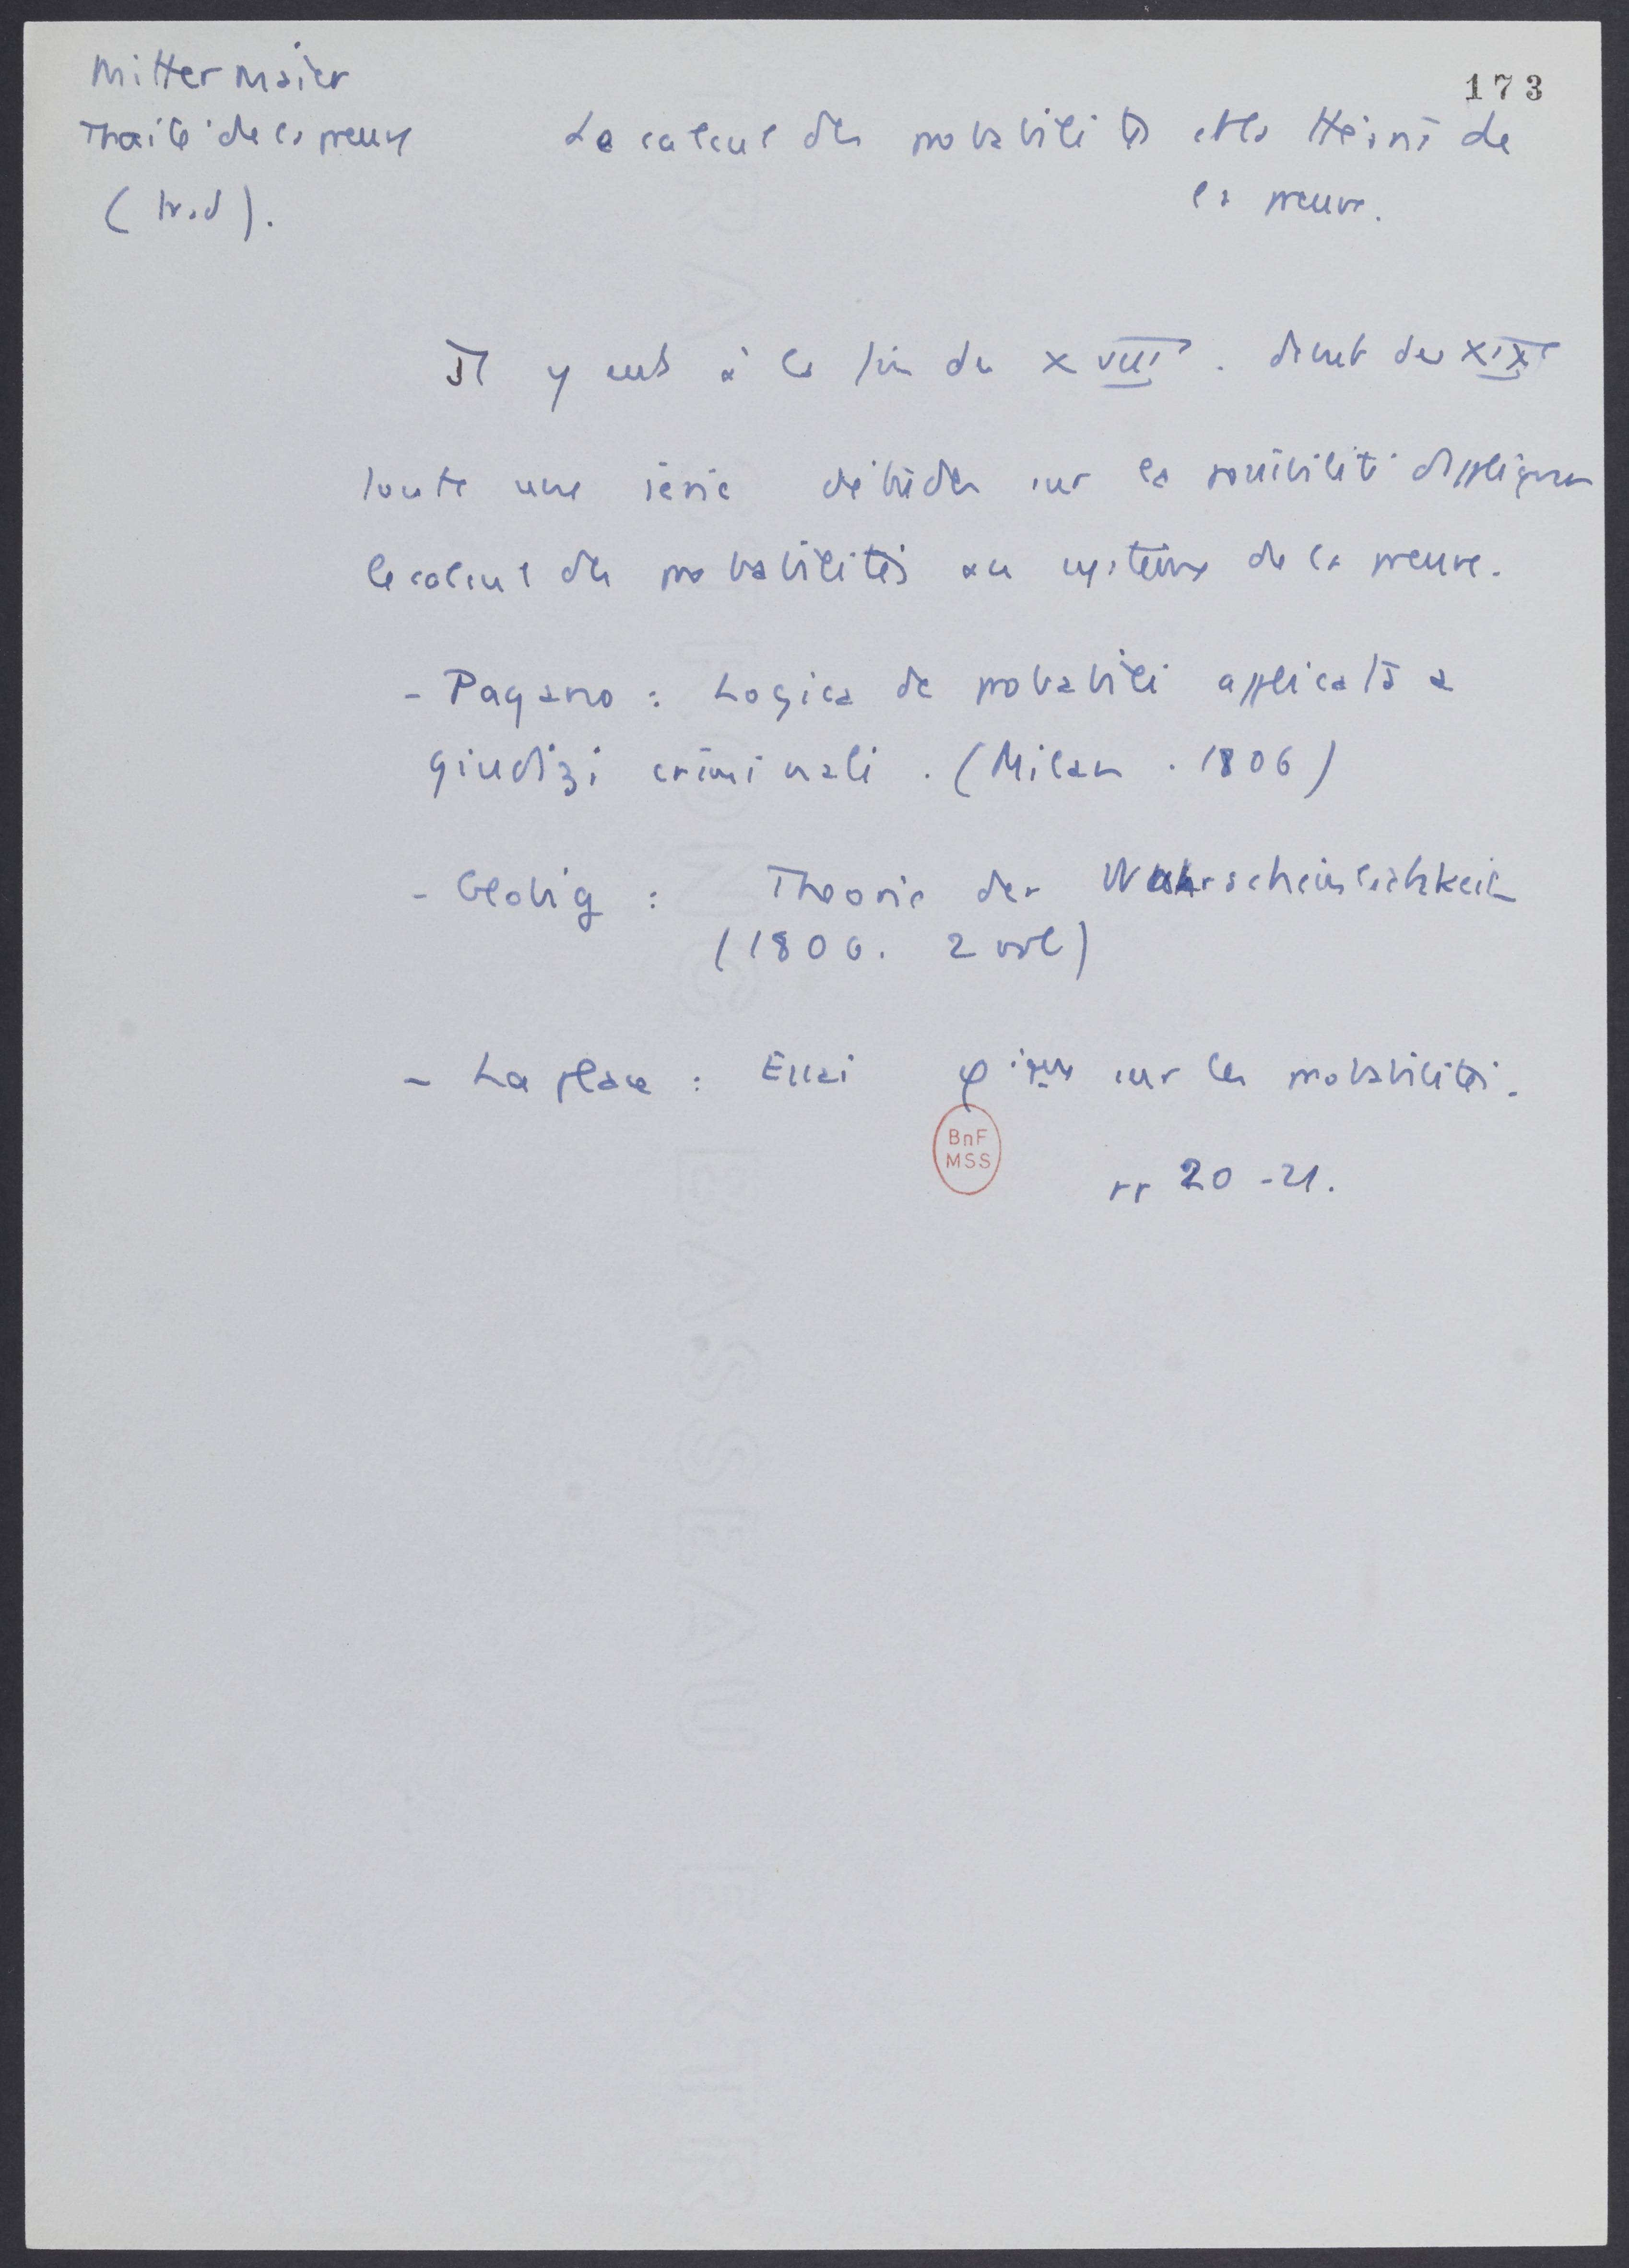 Mittermaier
173
Traité de la preuve
Le calcul des probabilités et la théorie de
la preuve.
(trad).
Il y eut à la fin du XVIIIe . début du XIXe
toute une série d'études sur la possibilité d'appliquer
le calcul des probabilités au système de la preuve.
- Pagano : Logica de probabili applicata a
giudizi criminali . (Milan . 1806)
- : Theorie der Wahrscheinlichkeit
(1806. 2 vol)
- Laplace : Essai φique sur les probabilités.
BnF
MSS
pp 20-21.
EXTRA STRONG BASSEAU EXTR